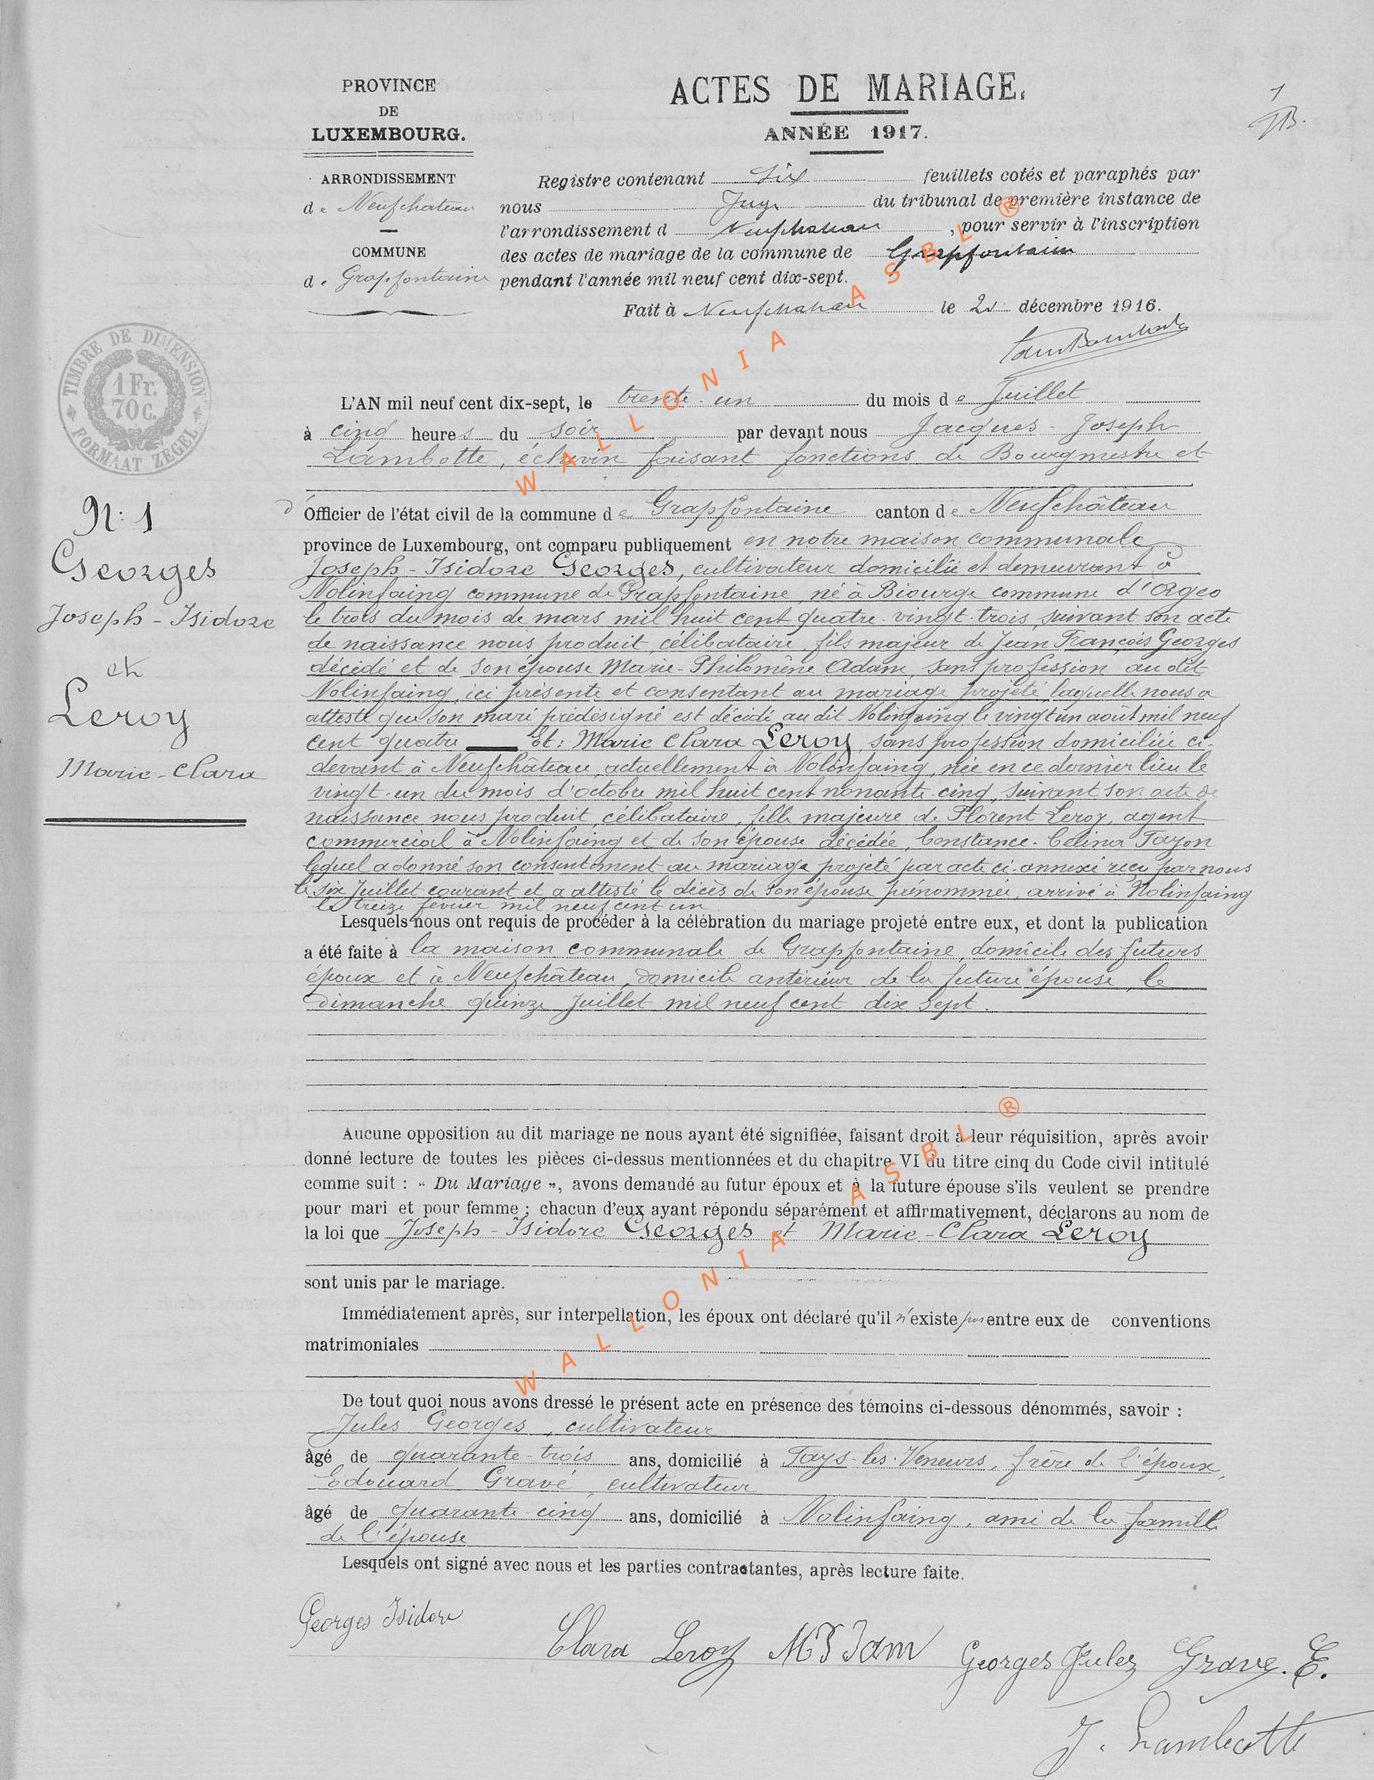 PROVINCE
DE
LUXEMBOURG.
ARRONDISSEMENT
de Neufchateau
COMMUNE
de Grapfontaine
ACTES DE MARIAGE.
ANNÉE 1917.
1
Registre contenant six feuillets cotés et paraphés par
nous Juge du tribunal de première instance de
l'arrondissement d Neufchateau, pour servir à l'inscription
des actes de mariage de la commune de Grapfontaine
pendant l'année mil neuf cent dix-sept.
Fait à Neufchateau le décembre 1916.
TIMBRE DE DIMENSION
1 Fr.
70 c.
FORMAAT ZEGEL
L'AN mil neuf cent dix-sept, le trente-un du mois de Juillet
à cinq heures du soir par devant nous Jacques-Joseph
Lambotte, échevin faisant fonctions de Bourgmestre et
d'Officier de l'état civil de la commune de Grapfontaine canton de Neufchâteau
province de Luxembourg, ont comparu publiquement en notre maison communale
Joseph-Isidore Georges, cultivateur domicilié et demeurant à
Nolinfaing commune de Grapfontaine, né à Biourge commune d'Orgeo
le trois du mois de mars mil huit cent quatre-vingt-trois, suivant son acte
de naissance nous produit, célibataire, fils majeur de Jean François Georges
décédé et de son épouse Marie-Philomène Adam, sans profession au dit
Nolinfaing, ici présente et consentant au mariage projeté, laquelle nous a
attesté que son mari prédésigné est décédé au dit Nolinfaing le vingt un août mil neuf
cent quatre Et: Marie Clara Leroy, sans profession domiciliée ci-
devant à Neufchâteau, actuellement à Nolinfaing, née en ce dernier lieu le
vingt-un du mois d'octobre mil huit cent nonante-cinq, suivant son acte de
naissance nous produit, célibataire, fille majeure de Florent Leroy, agent
commercial à Nolinfaing et de son épouse décédée, Constance-Célina Fayon
lequel a donné son consentement au mariage projeté par acte ci-annexé reçu par nous
le six Juillet courant et a attesté le décès de son épouse prénommée, arrivé à Nolinfaing
le treize février mil neuf cent un
Lesquels nous ont requis de procéder à la célébration du mariage projeté entre eux, et dont la publication
a été faite à la maison communale de Grapfontaine, domicile des futurs
époux et à Neufchâteau, domicile antérieur de la future épouse, le
dimanche quinze Juillet mil neuf cent dix sept.
N: 1
Georges
Joseph-Isidore
et
Leroy
Marie-Clara
Aucune opposition au dit mariage ne nous ayant été signifiée, faisant droit à leur réquisition, après avoir
donné lecture de toutes les pièces ci-dessus mentionnées et du chapitre VI du titre cinq du Code civil intitulé
comme suit : « Du Mariage », avons demandé au futur époux et à la future épouse s'ils veulent se prendre
pour mari et pour femme ; chacun d'eux ayant répondu séparément et affirmativement, déclarons au nom de
la loi que Joseph-Isidore Georges et Marie-Clara Leroy
sont unis par le mariage.
Immédiatement après, sur interpellation, les époux ont déclaré qu'il n'existe pas entre eux de conventions
matrimoniales
De tout quoi nous avons dressé le présent acte en présence des témoins ci-dessous dénommés, savoir :
Jules Georges, cultivateur
âgé de quarante-trois ans, domicilié à Fays-les-Veneurs, frère de l'époux,
Edouard Gravé, cultivateur
âgé de quarante cinq ans, domicilié à Nolinfaing, ami de la famille
de l'épouse
Lesquels ont signé avec nous et les parties contractantes, après lecture faite.
Georges Isidore
Clara Leroy
Georges Jules
Grave. E.
J. Lambotte
WALLONIA ASBL ®
WALLONIA ASBL ®